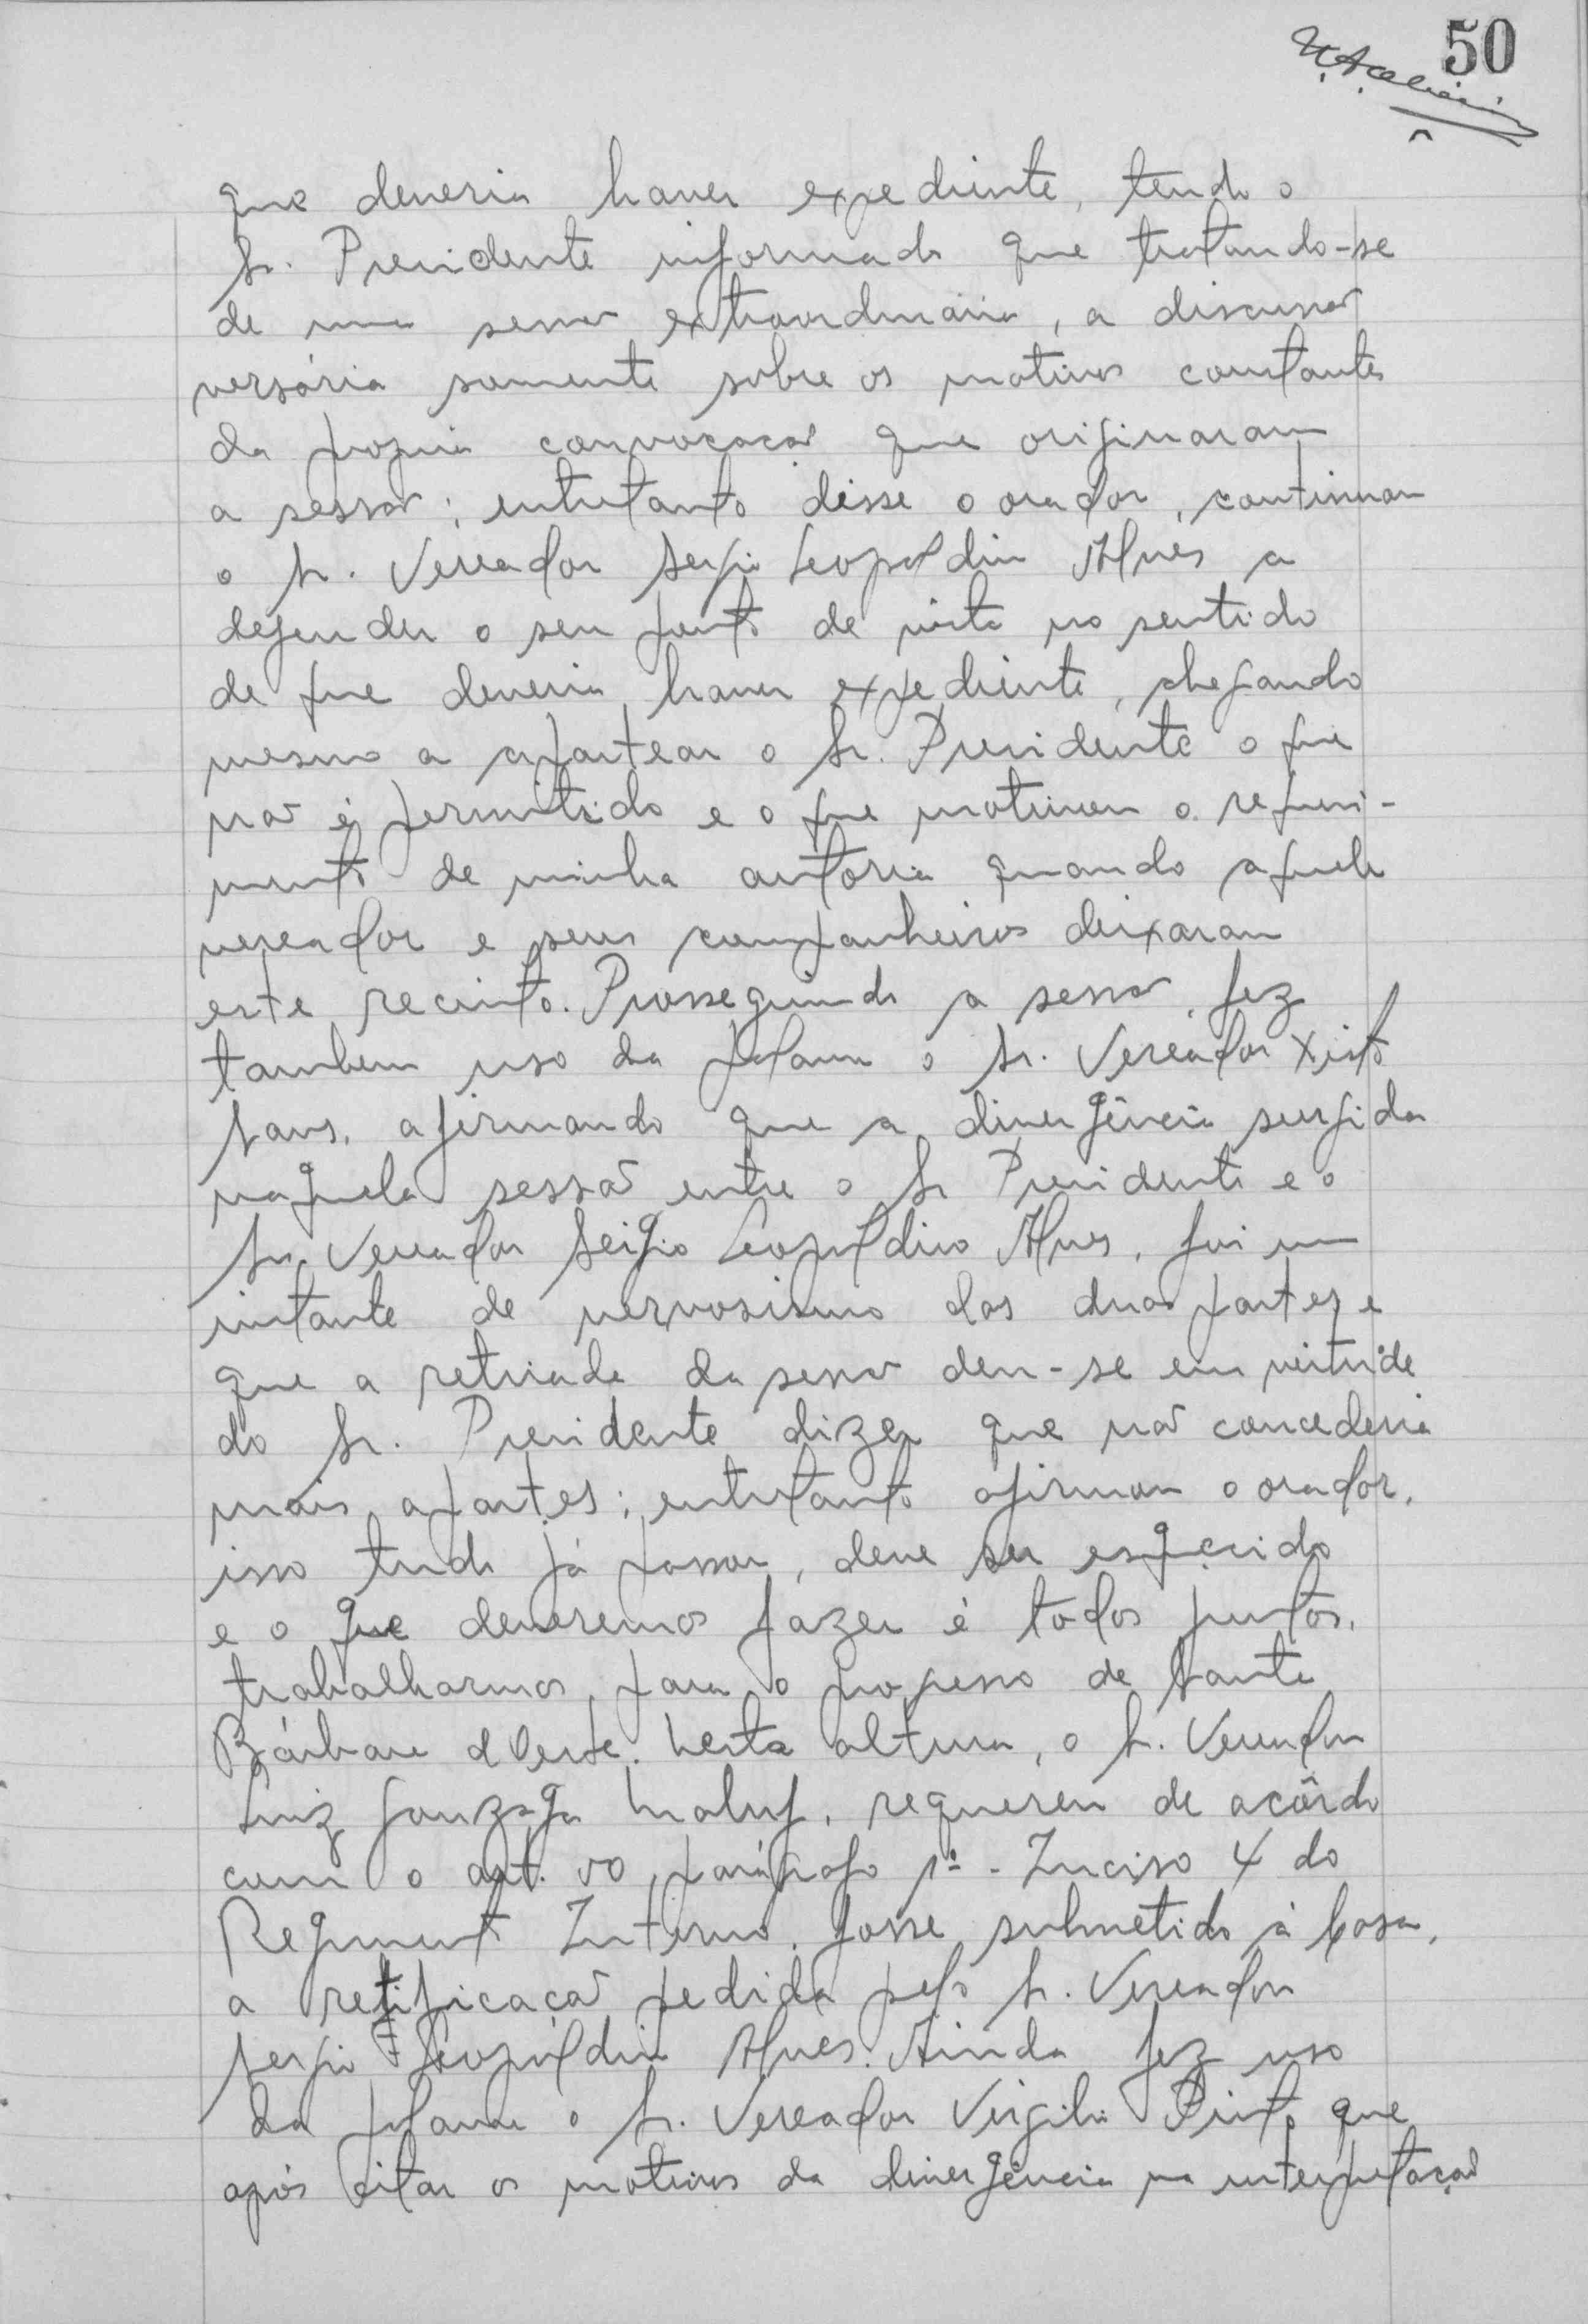 50
que deveria haver expediente, tendo o
Sr. Presidente informado que tratando-se
de uma sessão extraordinária, a discussão
versária somente sobre os motivos constantes
da propria convocação que originaram
a sessão; entretanto disse o orador, continuou
o Sr. Vereador Sergio Leopoldino Alves a
defender o seu ponto de vista no sentido
de que deveria haver expediente, chegando
mesmo a apartear o Sr. Presidente o que
não é permitido e o que motivou o requeri-
mento de minha autoria quando aquele
vereador e seus companheiros deixaram
este recinto. Prosseguindo a sessão, fez
tambem uso da palavra o Sr. Vereador Xisto
afirmando que a divergência surgida
naquela sessão entre o Sr Presidente e o
Sr. Vereador Sergio Leopoldino Alves, foi um
instante de nervosismo das duas partes e
que a retirada da sessão deu-se em virtude
do Sr. Presidente dizer que não concederia
mais apartes; entretanto afirmou o orador,
isso tudo já passou, deve ser esquecido
e o que deveremos fazer é todos juntos,
trabalharmos para o progresso de Santa
Bárbara d'Oeste. Nesta altura, o Sr. Vereador
Luiz Gonzaga Maluf, requereu de acôrdo
com o art. 50, parágrafo 1º - Inciso 4 do
Regimento Interno, fosse submetido à Casa,
a retificação pedida pelo Sr. Vereador
Sergio Leopoldino Alves. Ainda fez uso
da palavra o Sr. Vereador Virgilio Pinto que
após citar os motivos da divergência na interpretação